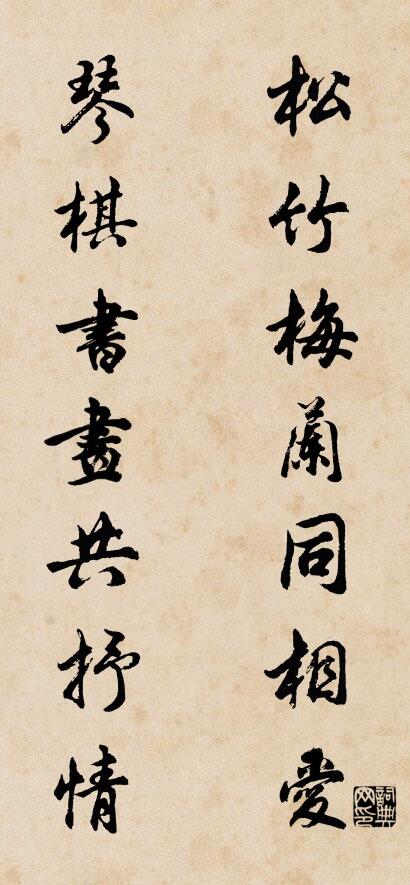 松竹梅蘭同相愛
琴棋書畫共抒情
詞典網印